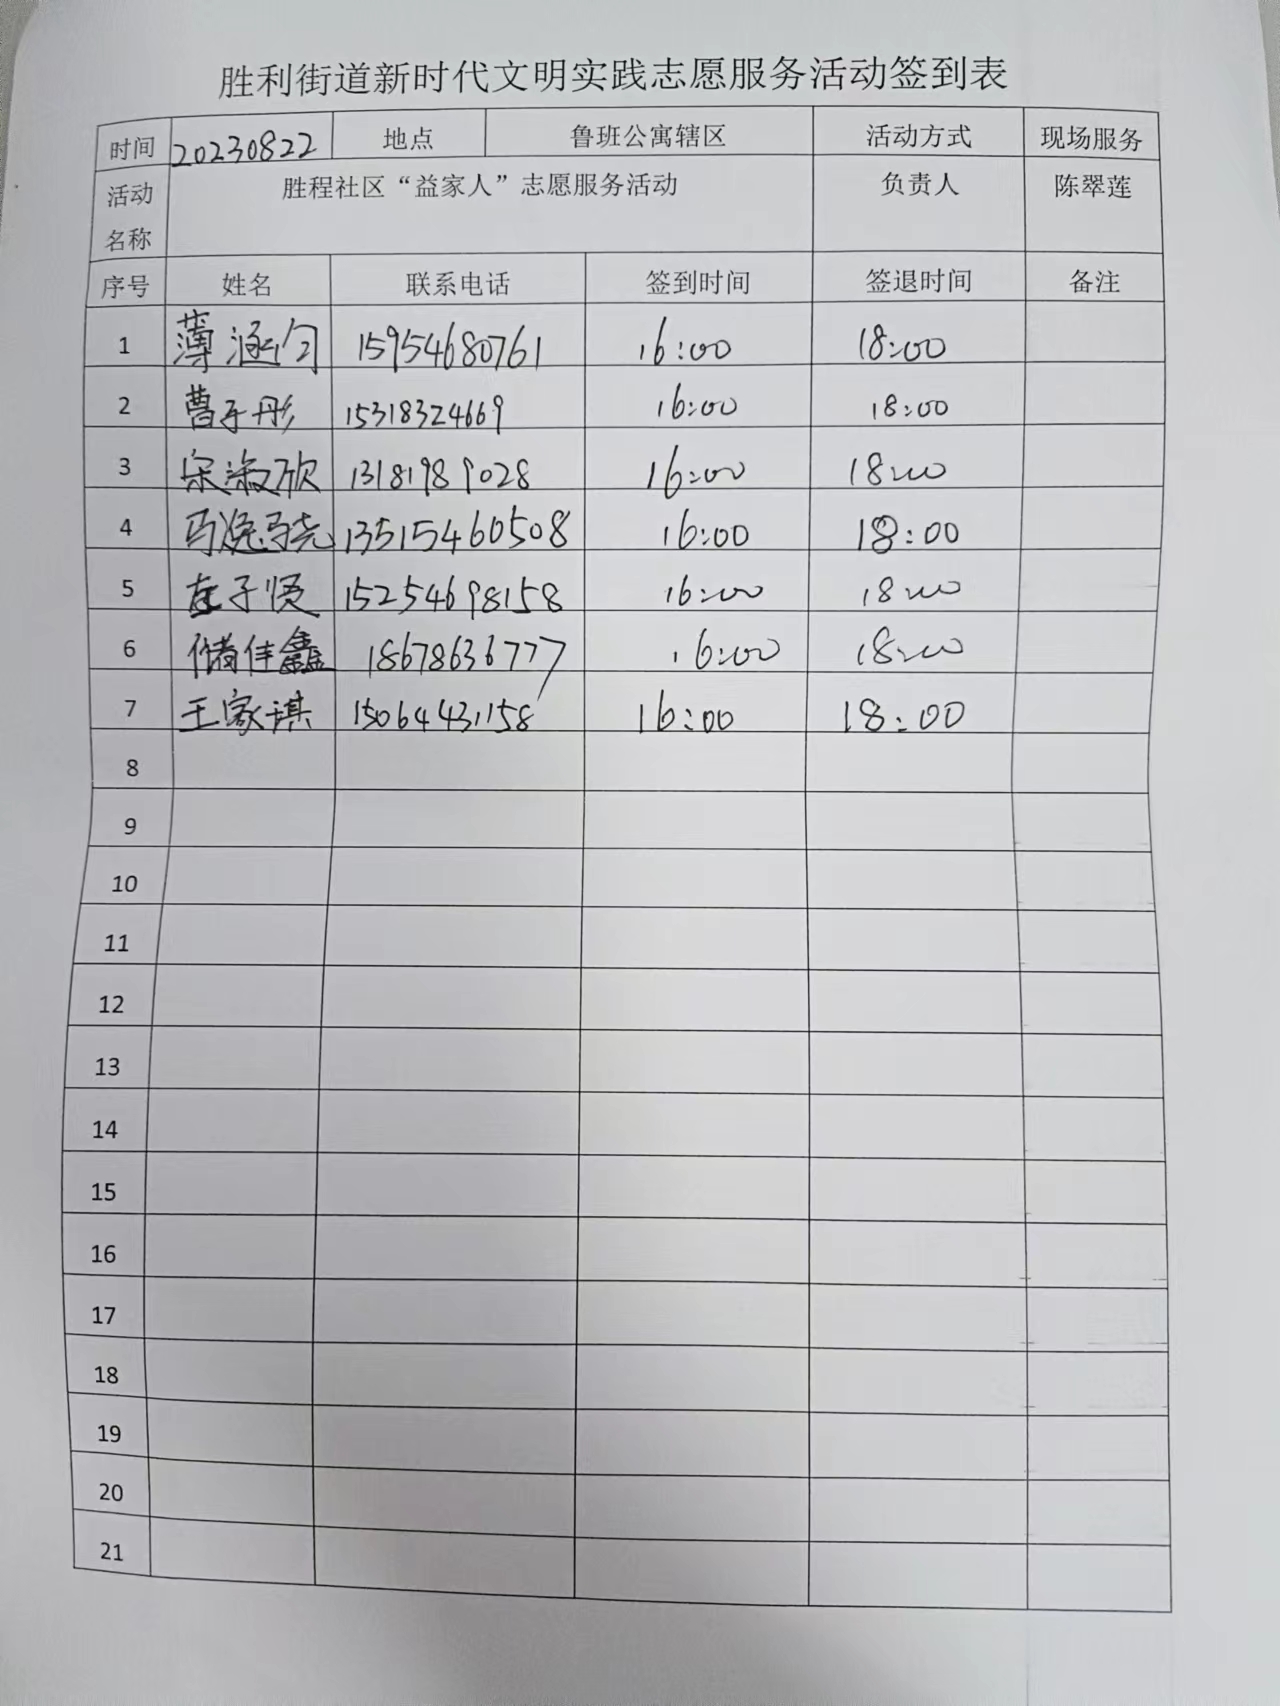 胜利街道新时代文明实践志愿服务活动签到表
时间 20230822 地点 鲁班公寓辖区 活动方式 现场服务
活动名称 胜程社区“益家人”志愿服务活动 负责人 陈翠莲
序号 姓名 联系电话 签到时间 签退时间 备注
1 薄涵匀 15954680761 16:00 18:00
2 曹子彤 15318324669 16:00 18:00
3 宋淑欣 13181989028 16:00 18:00
4 马逸骁 13515460508 16:00 18:00
5 左子贤 15254698158 16:00 18:00
6 储佳鑫 18678636777 16:00 18:00
7 王家琪 15064431158 16:00 18:00
8
9
10
11
12
13
14
15
16
17
18
19
20
21